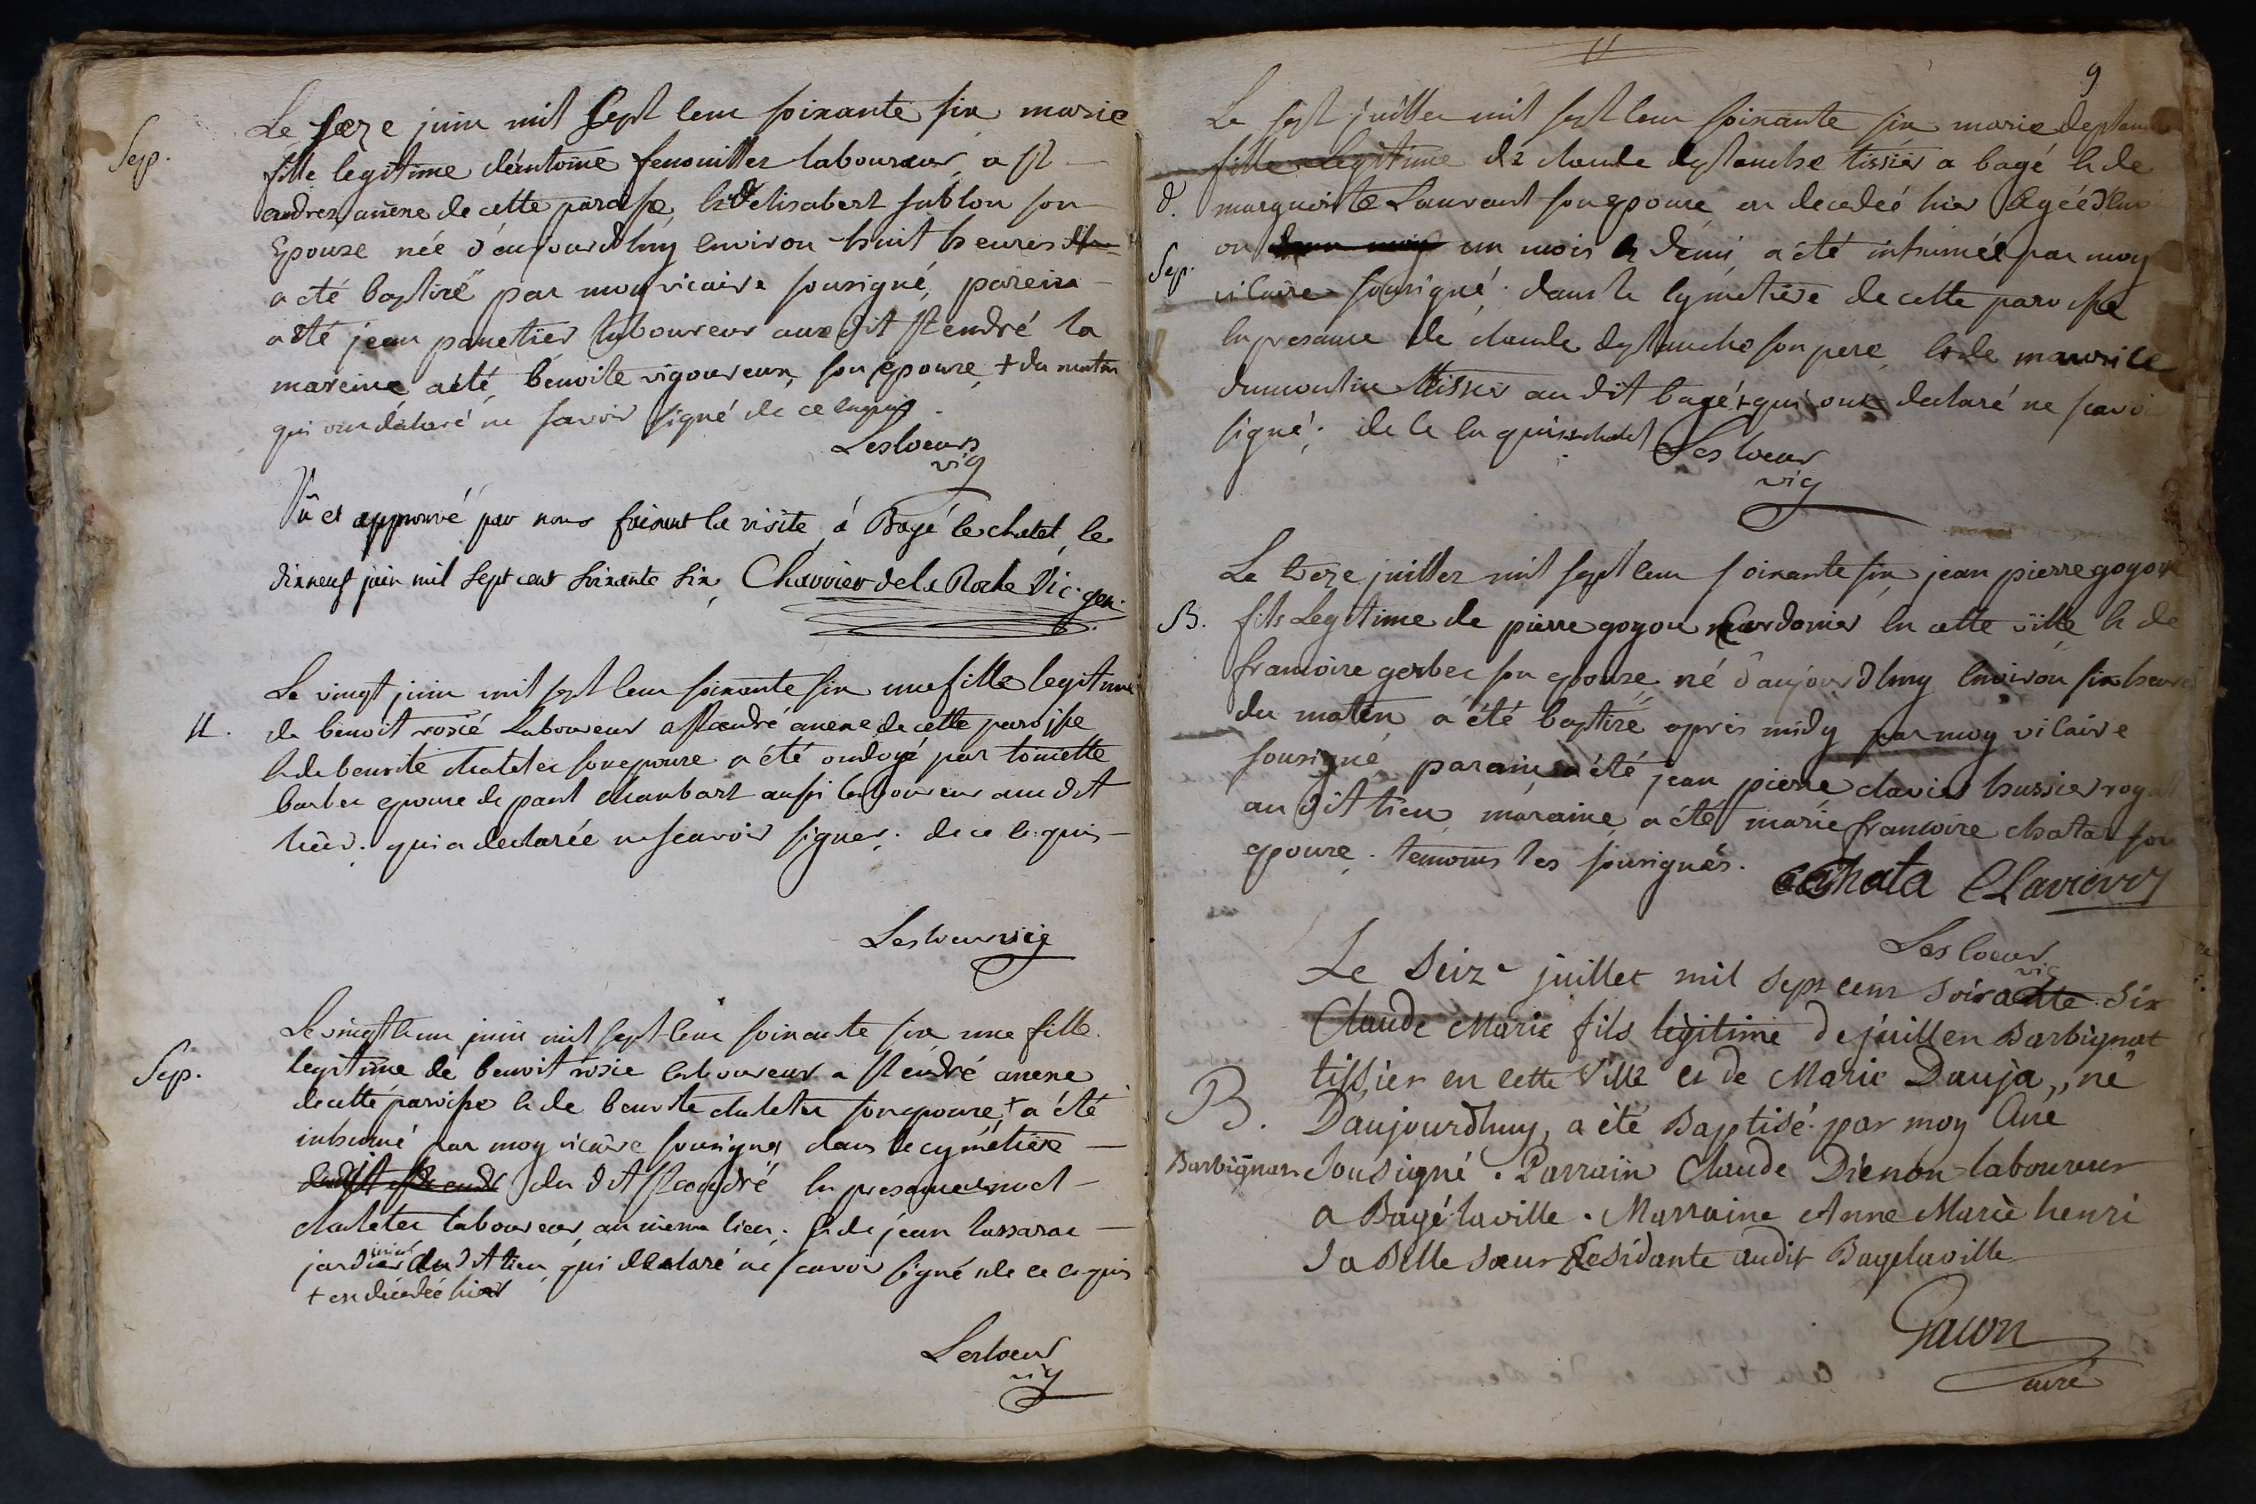 Sep.
Le seze juin mil sept cent soixante six marie
fille legitime dantoine fenouiller laboureur a st
andrez anexe de cette paroisse, & delisabert sublon son
Epouse née d'aujourdhuy environ huit heures
a été baptisé par moy vicaire sousigné, parein
a été jean panetier laboureur aux dit st endré la
mareine a été benoite vigoureux, son epouse, + du matin
qui ont declaré ne savoir signé de ce enquis.
Lescoeur
vic
Vû et approuvé par nous faisant la visite, à Bagé le chatel, le
dixneuf juin mil sept cent soixante six, Charrier de la Roche Vic. gen.
Le vingt juin mil sept cent soixante six une fille legitime
U. de benoit rosié Laboureur a st andré anexe de cette paroisse
& de benoite chateler son epouse a été ondoyé par toinette
barber epouse de paul chanbart aussi laboureur au dit
lieu. qui a declarée ne scavoir signer. de ce enquis
Lescoeur vic
Le vingt un juin mil sept cent soixante six une fille
Sep. legitime de benoit rosie laboureur a st endré anexe
de cette paroisse & de benoite chateler son epouse + a été
inhumé par moy vicaire sousigné dans le cymétiere
du dit st andré en presance
chateler laboureur au même lieu. & de jean lassarae
jardinier du dit lieu qui declaré ne scavoir signé de ce enquis
+ en décedée hier
Lescoeur
vic
9
Le sept juillet mil sept cent soixante six marie
fille legitime de claude desplanche tissier a bagé & de
d. marguerite Laurent son epouse en decedeé hier agéé
Sep. ou un mois & demi a été inhumée par moy
vicaire sousigné dans le cymétiere de cette paroisse
en presance de claude desplanche son pere, & de maurice
dumoulin tissier au dit bagé qui ont declaré ne scavoir
signé; de ce enquis
Lescoeur
vic
Le treze juillet mil sept cent soixante six jean pierre goyon
B. fils Legitime de pierre goyon cordonier en cette ville & de
francoise gerber son epouse né d'aujourdhuy environ six heures
du matin a été baptisé apres midy par moy vicaire
sousigné parain a été jean pierre clavier hussier royal
au dit lieu maraine a été marie francoise chata son
epouse. temoins les sousignés.
Chata Clavier
Lescoeur
vic
Le seize juillet mil sept cent soixante six
Claude Marie fils légitime de juillen Barbignat
tissier en cette ville et de Marie Dauja, né
B. Daujourdhuy, a été Baptisé par moy Curé
Barbignat sousigné. Parrain Claude Dienon laboureur
a Bagé laville. Marraine Anne Marie henri
sa Belle soeur Residante audit Bagelaville
Gacon
curé